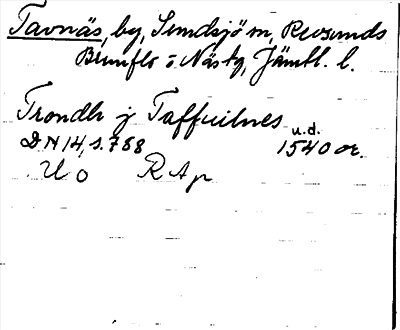 Tavnäs, by, Sundsjö sn, Revsunds
Brunflo o. Näs tg, Jämtl. l.
Trondh j Taffuilnes u.d.
DN 14, s. 758 1540 or.
U o R Ap